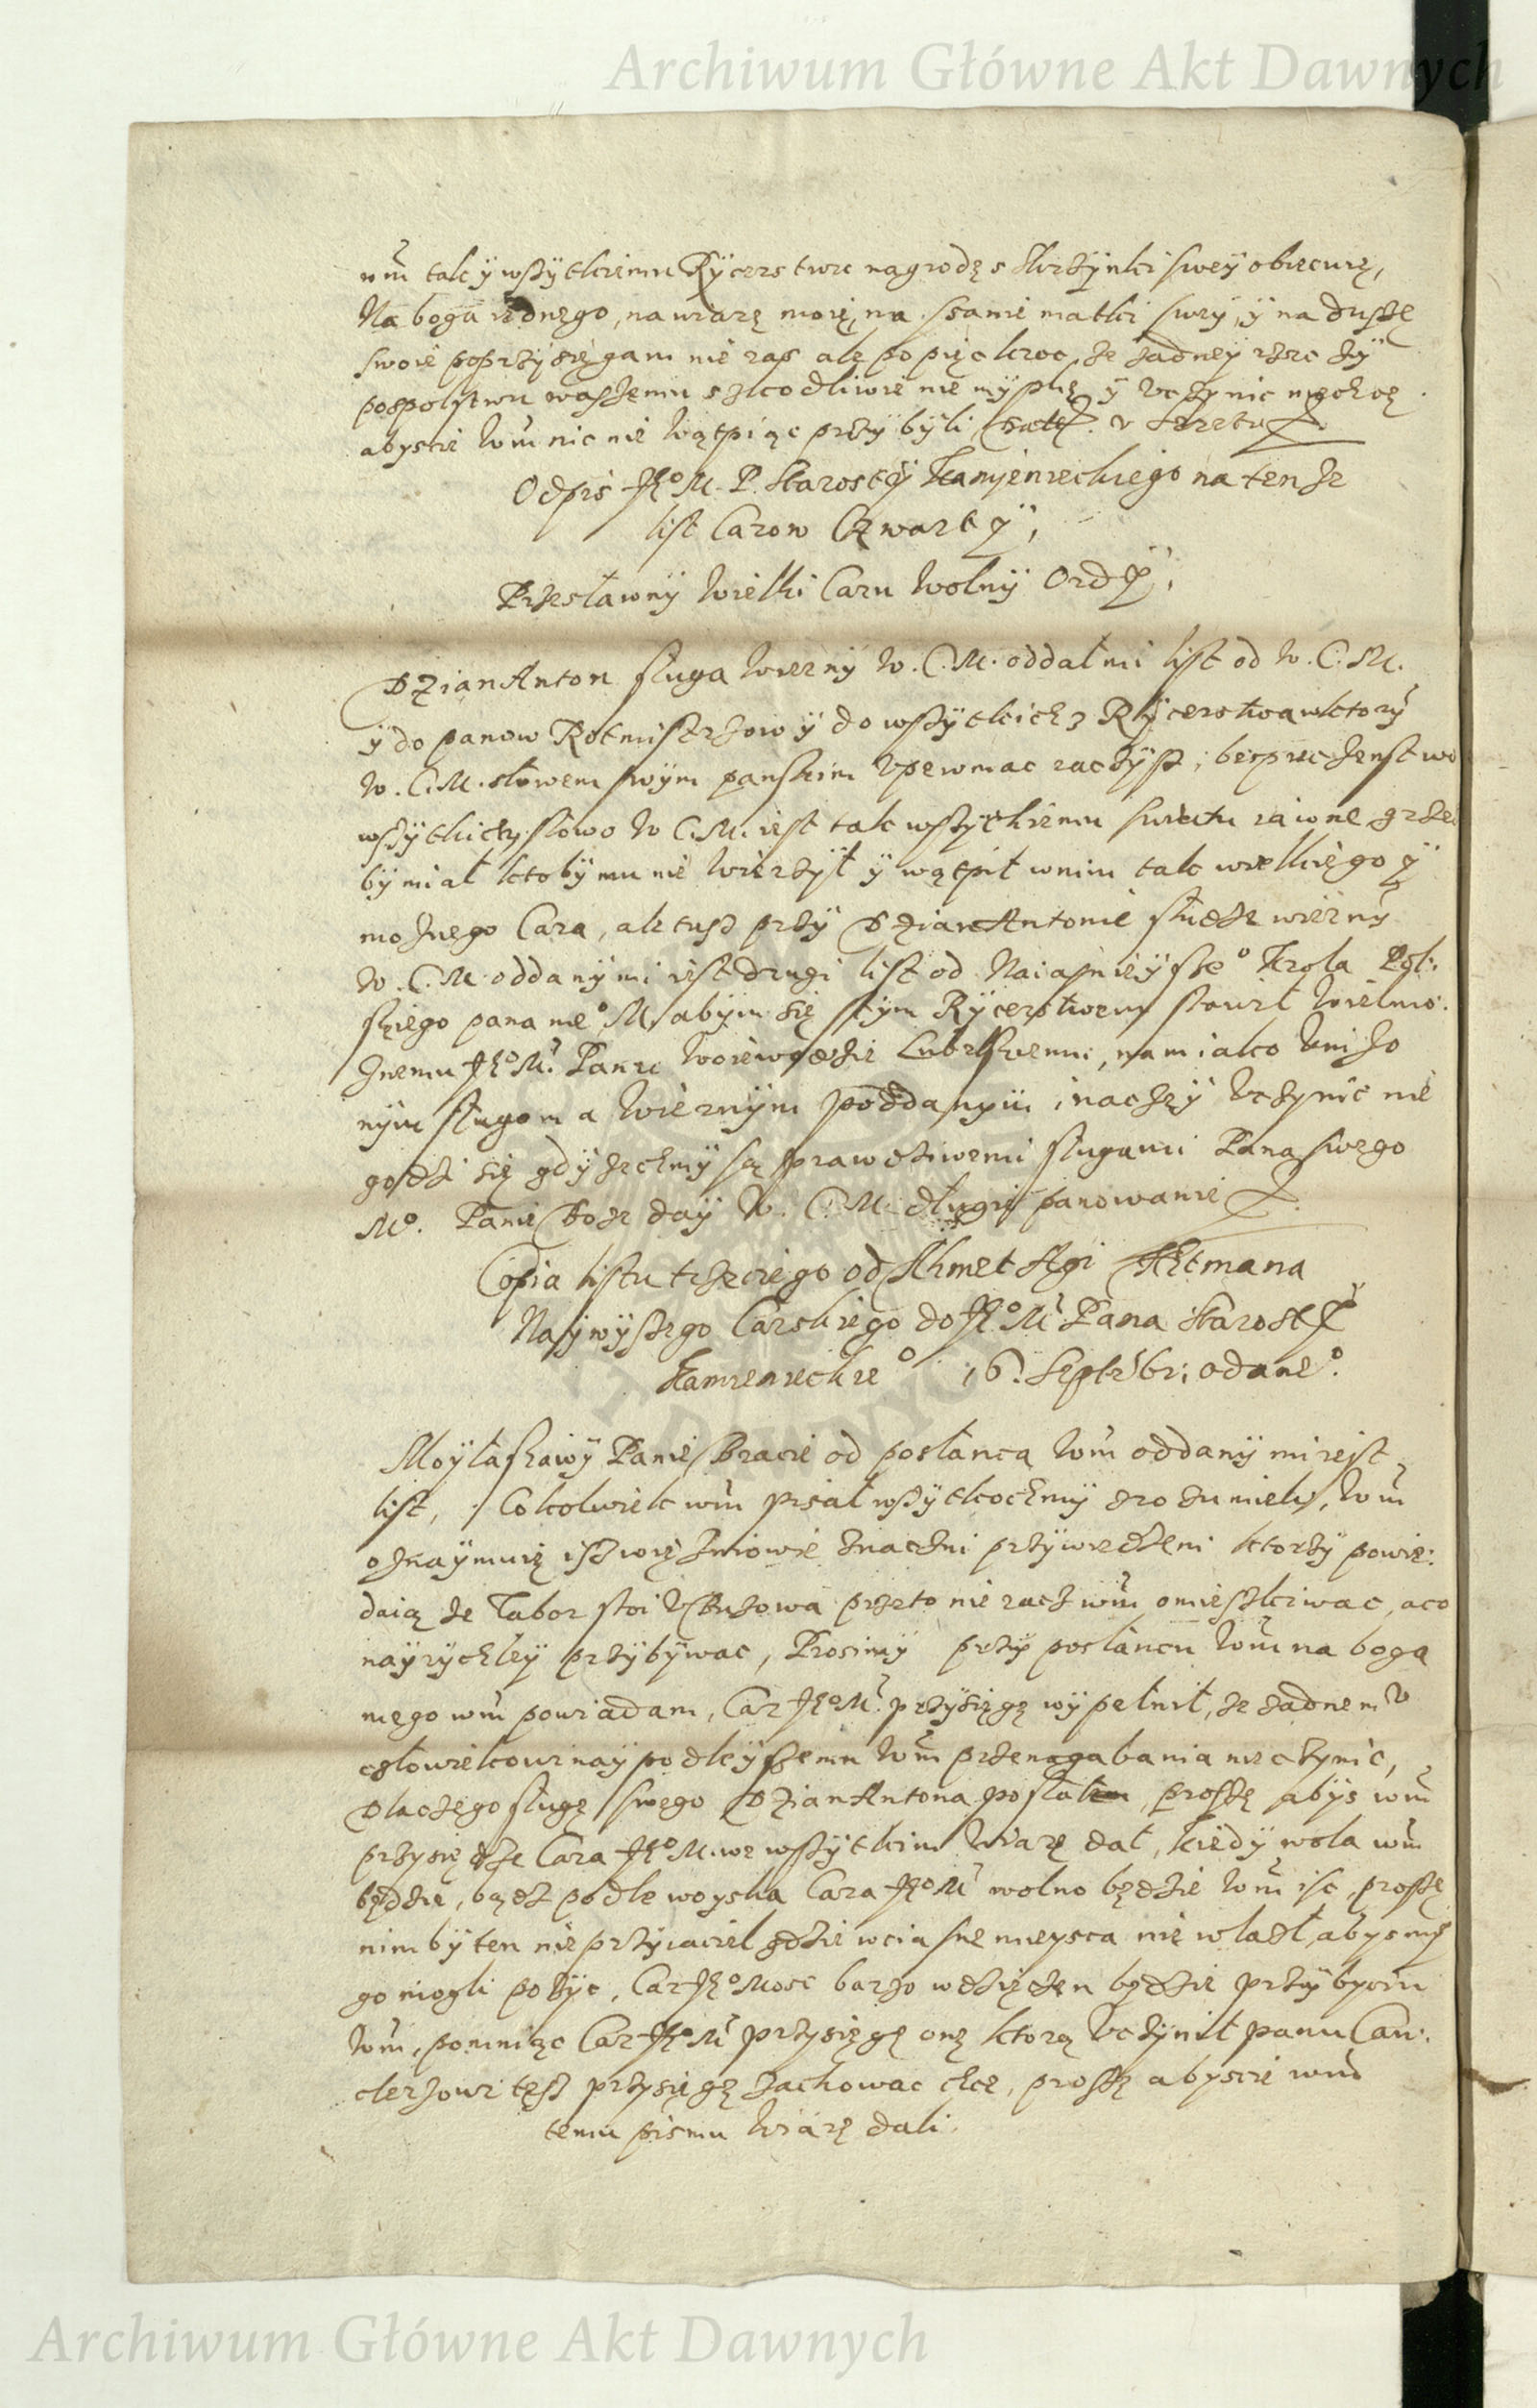 Archiwum Główne Akt Dawnych
wm̃ tak y wszytkiemu Rycerstwu nagrodę s skrzynki swey obiecuię,
Na boga iednego, na wiarę moię, na ssanie matki swey, y na duszę
swoie poprzysięgam nie raz ale po pięckroc, że żadney rzeczy
pospolstwu waszemu szkodliwie nie myslę y vczynic niechcę
abyscie wm̃ nic nie wątpiąc przybyli
Odpis Jeº M. P. Starosty Kamienieckiego na tenże
list Carow Czwarty,
Przesławny wielki Caru wolny Ordy,
Dzian Anton sługa wierny W. C. M. oddał mi list od W. C. M.
y do panow Rotmistrzow y do wszytkich z Rycerstwa w ktory
W. C. M. słowem swym panskim vpewniac raczysz, bezpieczenstwo
wszytkich, słowo W C. M. iest tak wszytkiemu swiatu iawne grzech
by miał ktoby mu nie wierzył y wątpił w nim tak wielkiego y
możnego Cara, ale tusz przy Dzian Antonie słudze wiernỹ
W. C. M. oddany mi iest drugi list od Naiasnieyszeº Krola Pol:
skiego pana meº M. abym się s tym Rycerstwem stawił wielmo:
żnemu Jeº M. Panu woiewodzie Lubelskiemu, nam iako vniżo
nym sługom a wiernym poddanym inaczey vczynic nie
godzi się gdyżechmy są prawdziwemi sługami Pana swego
Mº. Panie Boże day W. C. M. długie panowanie
Copia listu trzeciego od Ahmet Agi Hetmana
Naywyższego Carskiego do Jeº M. Pana Starosty
Kamienieckieº 16. Septẽbr: odaneº.
Moy łaskawy Panie Bracie od posłanca wm̃ oddany mi iest
list, Cokolwiek wm̃ pisał wszytkochmy zrozumieli, wm̃
oznaymuię isz więzniowie znaczni przywiedzeni ktorzy powie:
daią że Tabor stoi v Buzowa przeto nie racz wm̃ omieszkiwac, a co
nayrychley przybywac, Prosimy przy posłancu wm̃ na boga
mego wm̃ powiadam, Car Jeº M. przysięgę wypełnił, że żadnemv
człowiekowi naypodleyszemu wm̃ przenagabania nie czynic,
Dlaczego sługę swego Dzian Antona posłał, proszę abys wm̃
przysiędze Cara Jeº M. we wszytkim wiarę dał, kiedy wola wm̃
będzie, bądz podle woyska Cara Jeº M. wolno będzie wm̃ isc, proszę
nim by ten nieprzyiaciel gdzie w ciasne mieysca nie wlazł, abysmy
go mogli pożyc, Car Jeº Mosc barzo wdzięczen będzie przybyciu
wm̃, pomniąc Car Jeº M. przysięgę onę ktorą vczynił panu Can:
clerzowi tęsz przysięgę zachowac chce, proszę abyscie wm̃
temu pismu wiarę dali.
Archiwum Główne Akt Dawnych